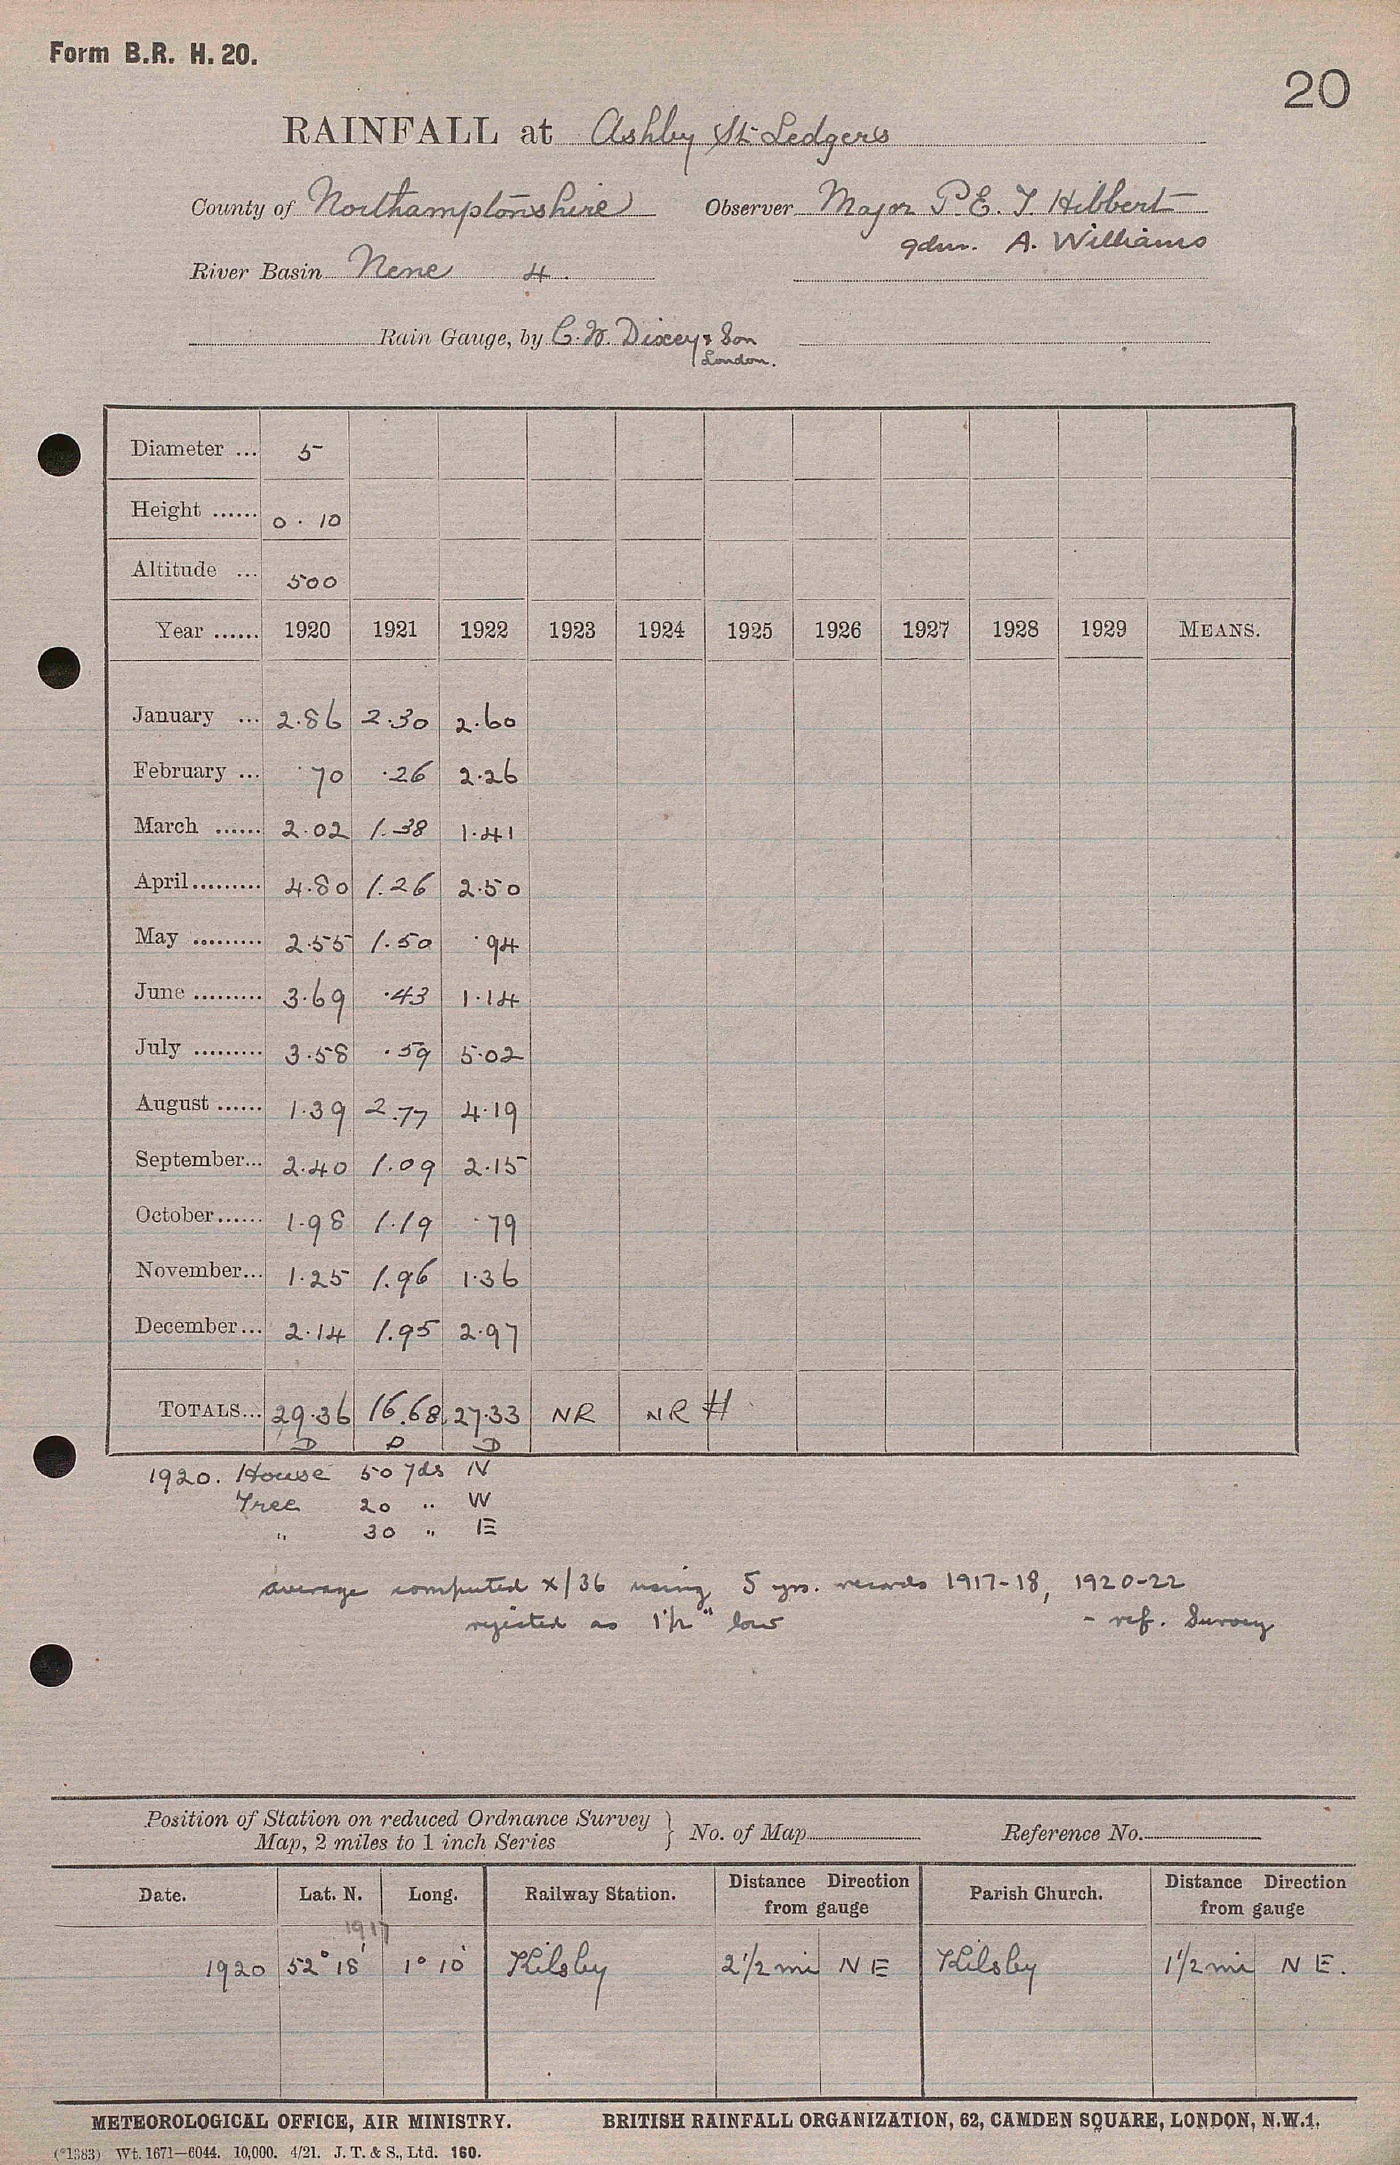 Form B.R. H. 20.
20
RAINFALL at Ashby St. Ledgers
County of Northamptonshire Observer Major P. E. J. Hibbert
gdnr. A. Williams
River Basin Nene 4.
Rain Gauge, by C. W. Dixey & Son
London.
Diameter ... 5
Height ...... 0 . 10
Altitude ... 500
Year ...... 1920 1921 1922 1923 1924 1925 1926 1927 1928 1929 MEANS.
January ... 2.86 2.30 2.60
February ... .70 .26 2.26
March ...... 2.02 1.38 1.41
April......... 4.80 1.26 2.50
May ......... 2.55 1.50 .94
June ......... 3.69 .43 1.14
July ......... 3.58 .59 5.02
August ...... 1.39 2.77 4.19
September... 2.40 1.09 2.15
October...... 1.98 1.19 .79
November... 1.25 1.96 1.36
December... 2.14 1.95 2.97
TOTALS... 29.36 16.68 27.33 NR NR H
D D D
1920. House 50 yds N
Tree 20 " W
" 30 " E
average computed x/36 using 5 yrs. records 1917-18, 1920-22
rejected as 1 1/2" low - ref. Survey
Position of Station on reduced Ordnance Survey
Map, 2 miles to 1 inch Series } No. of Map Reference No.
Date. Lat. N. Long. Railway Station. Distance Direction from gauge Parish Church. Distance Direction from gauge
1917
1920 52° 18' 1° 10' Kilsby 2 1/2 mi N E Kilsby 1 1/2 mi N E.
METEOROLOGICAL OFFICE, AIR MINISTRY. BRITISH RAINFALL ORGANIZATION, 62, CAMDEN SQUARE, LONDON, N.W.1.
(*1383) Wt. 1671—6044. 10,000. 4/21. J. T. & S., Ltd. 160.